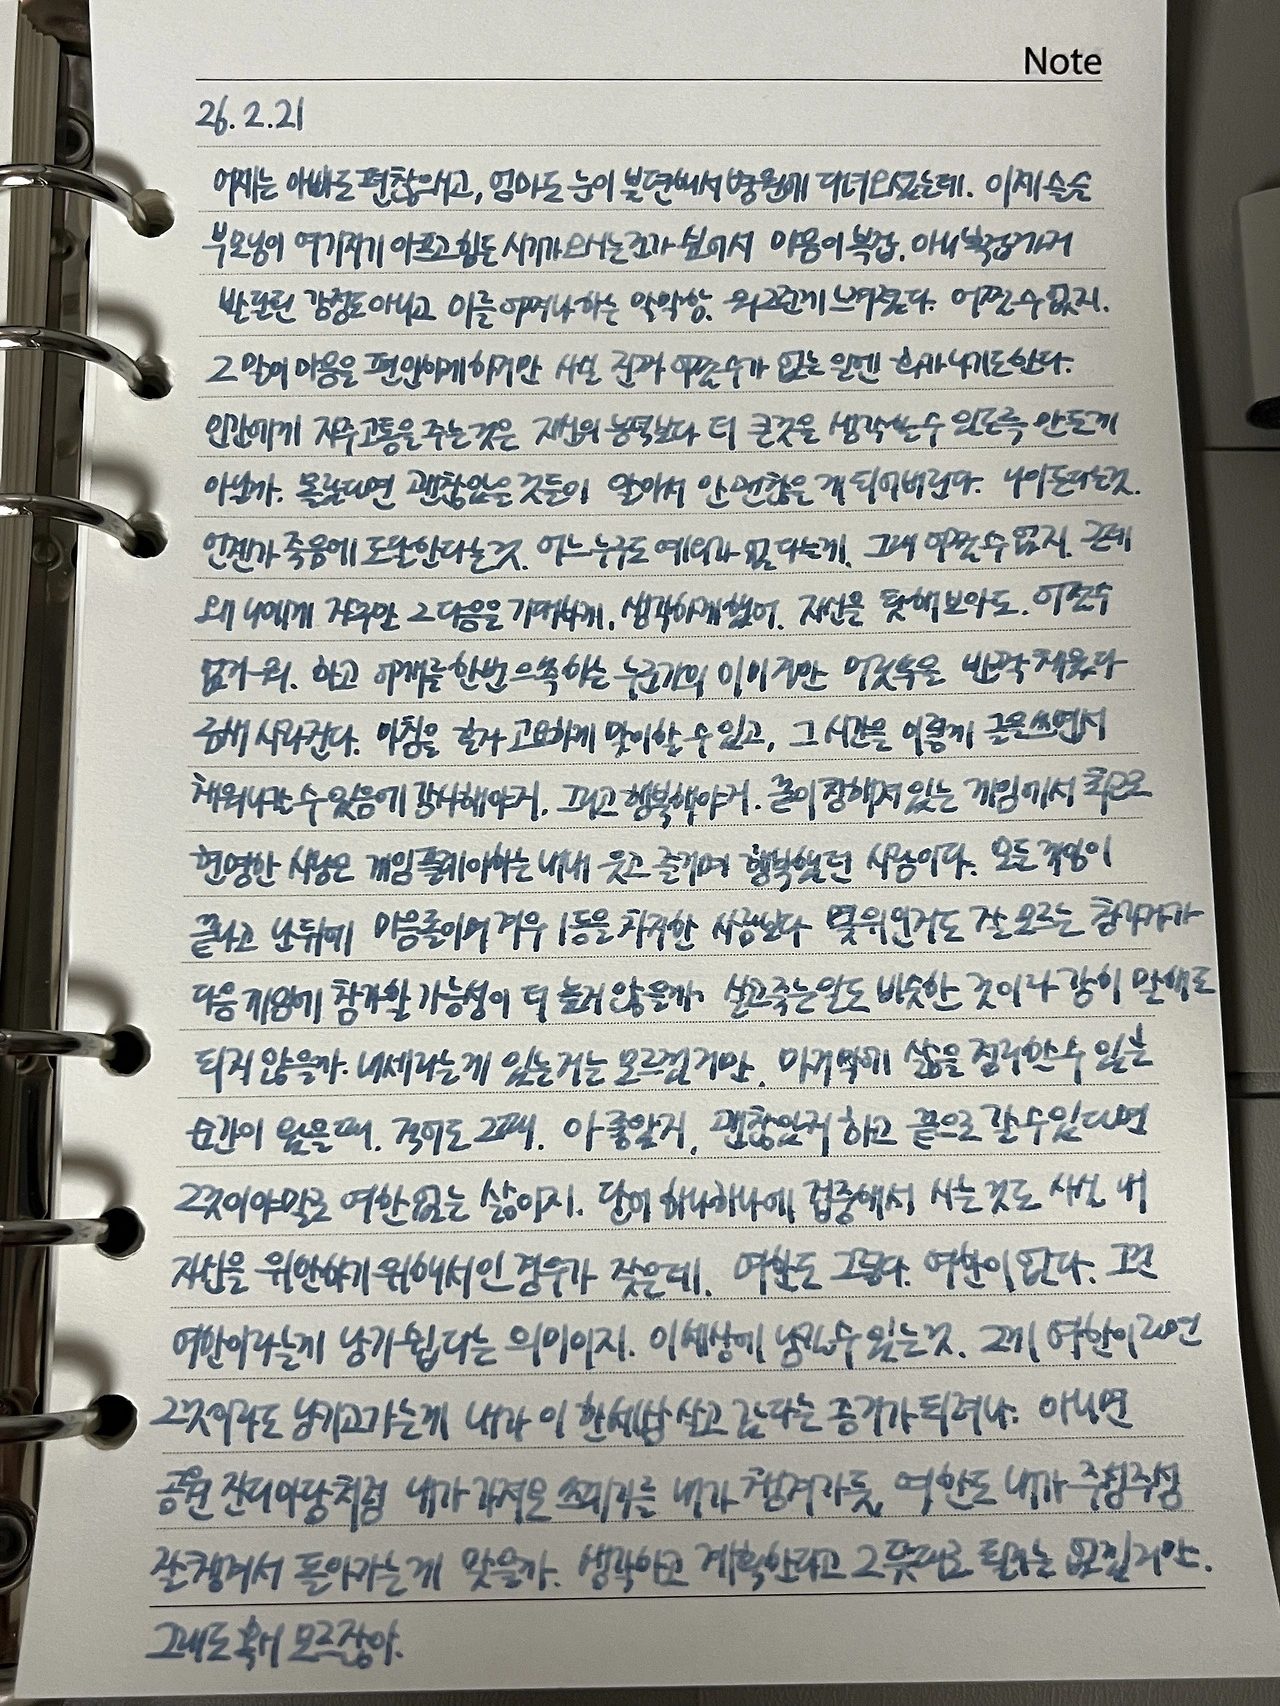 Note
26. 2. 21
어제는 아빠도 편찮으시고, 엄마도 눈이 불편해서 병원에 다녀오셨는데. 이제 슬슬
부모님이 여기저기 아프고 힘든 시기가 오시는건가 싶어서 마음이 복잡. 아니 복잡까지
반달린 감정도 아니고 이를 어쩌나 하는 막막함. 왜 그런게 느껴졌다. 어쩔 수 없지.
그 말이 마음을 편안하게 하지만 사실 진짜 어쩔 수가 없는 일엔 화가 나기도 한다.
인간에게 자주 고통을 주는 것은 자신의 능력보다 더 큰 것을 생각할 수 있도록 만든게
아닌가. 몰랐다면 괜찮았을 것들이 알아서 안 괜찮을 게 되어버린다. 나이든다는 것.
언젠가 죽음에 도달한다는 것. 어느 누구도 예외가 없다는게. 그래 어쩔 수 없지. 근데
왜 나에게 자꾸만 그 다음을 기대하게, 생각하게 했어. 자신을 탓해보아도. 어쩔 수
없지 뭐. 하고 어깨를 한번 으쓱하는 누군가의 이미지만 머릿속을 반짝 채웠다
금새 사라진다. 아침을 혼자 고요하게 맞이할 수 있고, 그 시간을 이렇게 글을 쓰면서
채워나갈 수 있음에 감사해야지. 그리고 행복해야지. 끝이 정해져 있는 게임에서 최고로
현명한 사람은 게임 플레이하는 내내 웃고 즐기며 행복했던 사람이다. 모든 게임이
끝나고 난 뒤에 마음졸이며 겨우 1등을 차지한 사람보다 몇위인지도 잘 모르는 참가자가
다음 게임에 참가할 가능성이 더 높지 않을까. 살고 죽는 일도 비슷한 것이라 감히 말해도
되지 않을까. 내세라는게 있는지는 모르겠지만, 마지막에 삶을 정리할 수 일분
순간이 있을 때. 적어도 그때. 아 좋았지, 괜찮았지 하고 끝으로 갈 수 있다면
그것이야말로 여한 없는 삶이지. 단어 하나하나에 집중해서 사는 것도 사실 내
자신을 위안하기 위해서인 경우가 잦은데. 여한도 그렇다. 여한이 없다. 그건
여한이라는게 남기 쉽다는 의미이지. 이 세상에 남길 수 있는 것. 그게 여한이라면
그것이라도 남기고 가는게 내가 이 한세상 살고 갔다는 증거가 되려나. 아니면
공원 잔디마당처럼 내가 가져온 쓰레기는 내가 챙겨가듯, 여한도 내가 주섬주섬
잘 챙겨서 돌아가는게 맞을까. 생각하고 계획한다고 그 뜻대로 되는 건 없겠지만.
그래도 혹시 모르잖아.